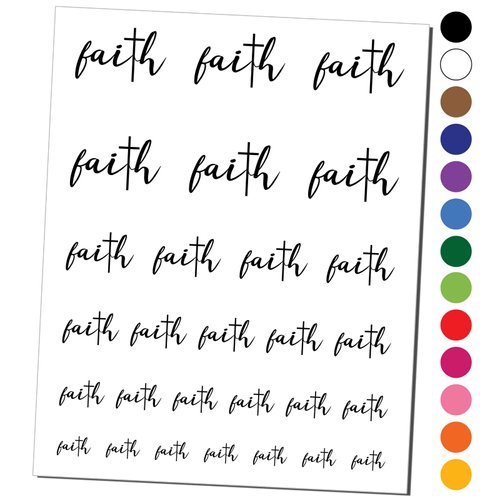 faith faith faith
faith faith faith
faith faith faith faith
faith faith faith faith faith
faith faith faith faith faith faith
faith faith faith faith faith faith faith